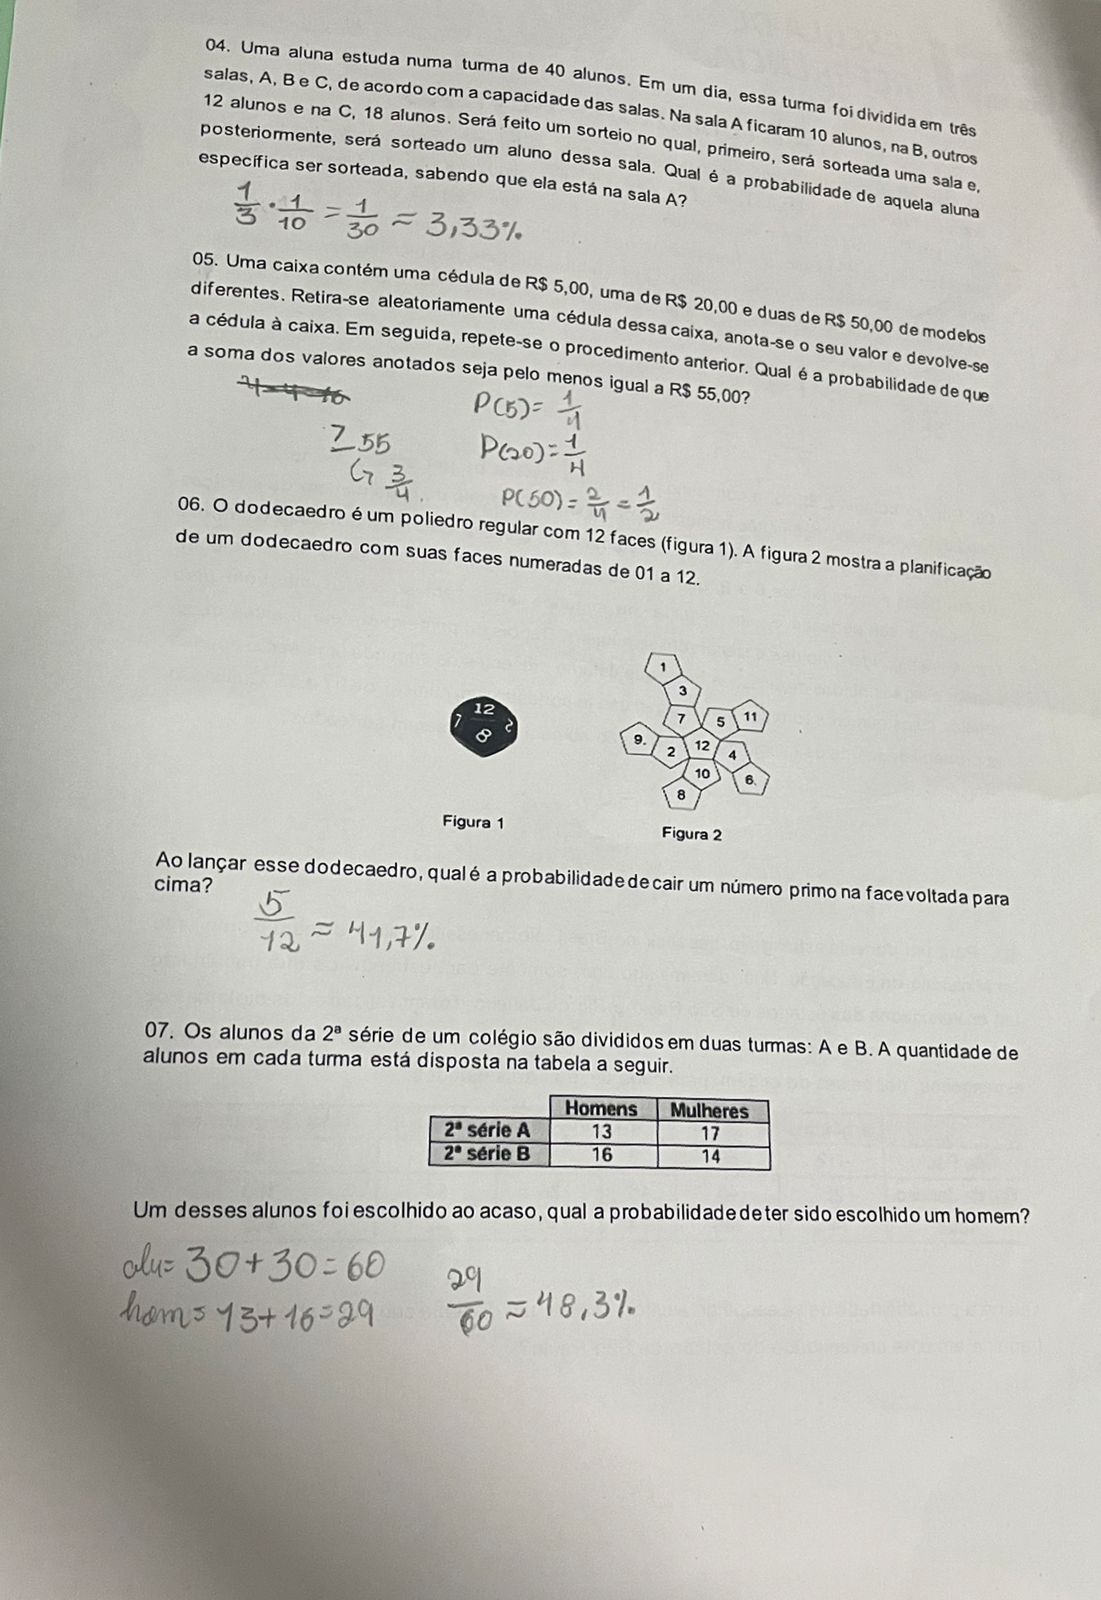 04. Uma aluna estuda numa turma de 40 alunos. Em um dia, essa turma foi dividida em três
salas, A, B e C, de acordo com a capacidade das salas. Na sala A ficaram 10 alunos, na B, outros
12 alunos e na C, 18 alunos. Será feito um sorteio no qual, primeiro, será sorteada uma sala e,
posteriormente, será sorteado um aluno dessa sala. Qual é a probabilidade de aquela aluna
específica ser sorteada, sabendo que ela está na sala A?
1/3 · 1/10 = 1/30 ≈ 3,33%
05. Uma caixa contém uma cédula de R$ 5,00, uma de R$ 20,00 e duas de R$ 50,00 de modelos
diferentes. Retira-se aleatoriamente uma cédula dessa caixa, anota-se o seu valor e devolve-se
a cédula à caixa. Em seguida, repete-se o procedimento anterior. Qual é a probabilidade de que
a soma dos valores anotados seja pelo menos igual a R$ 55,00?
P(5) = 1/4
≥ 55
P(20) = 1/4
↳ 3/4.
P(50) = 2/4 = 1/2
06. O dodecaedro é um poliedro regular com 12 faces (figura 1). A figura 2 mostra a planificação
de um dodecaedro com suas faces numeradas de 01 a 12.
1
3
7 5 11
9. 2 12 4
10 6.
8
12
7 2
8
Figura 1
Figura 2
Ao lançar esse dodecaedro, qual é a probabilidade de cair um número primo na face voltada para
cima?
5/12 ≈ 41,7%
07. Os alunos da 2ª série de um colégio são divididos em duas turmas: A e B. A quantidade de
alunos em cada turma está disposta na tabela a seguir.
Homens Mulheres
2ª série A 13 17
2ª série B 16 14
Um desses alunos foi escolhido ao acaso, qual a probabilidade de ter sido escolhido um homem?
alu = 30 + 30 = 60
hom = 13 + 16 = 29
29/60 ≈ 48,3%